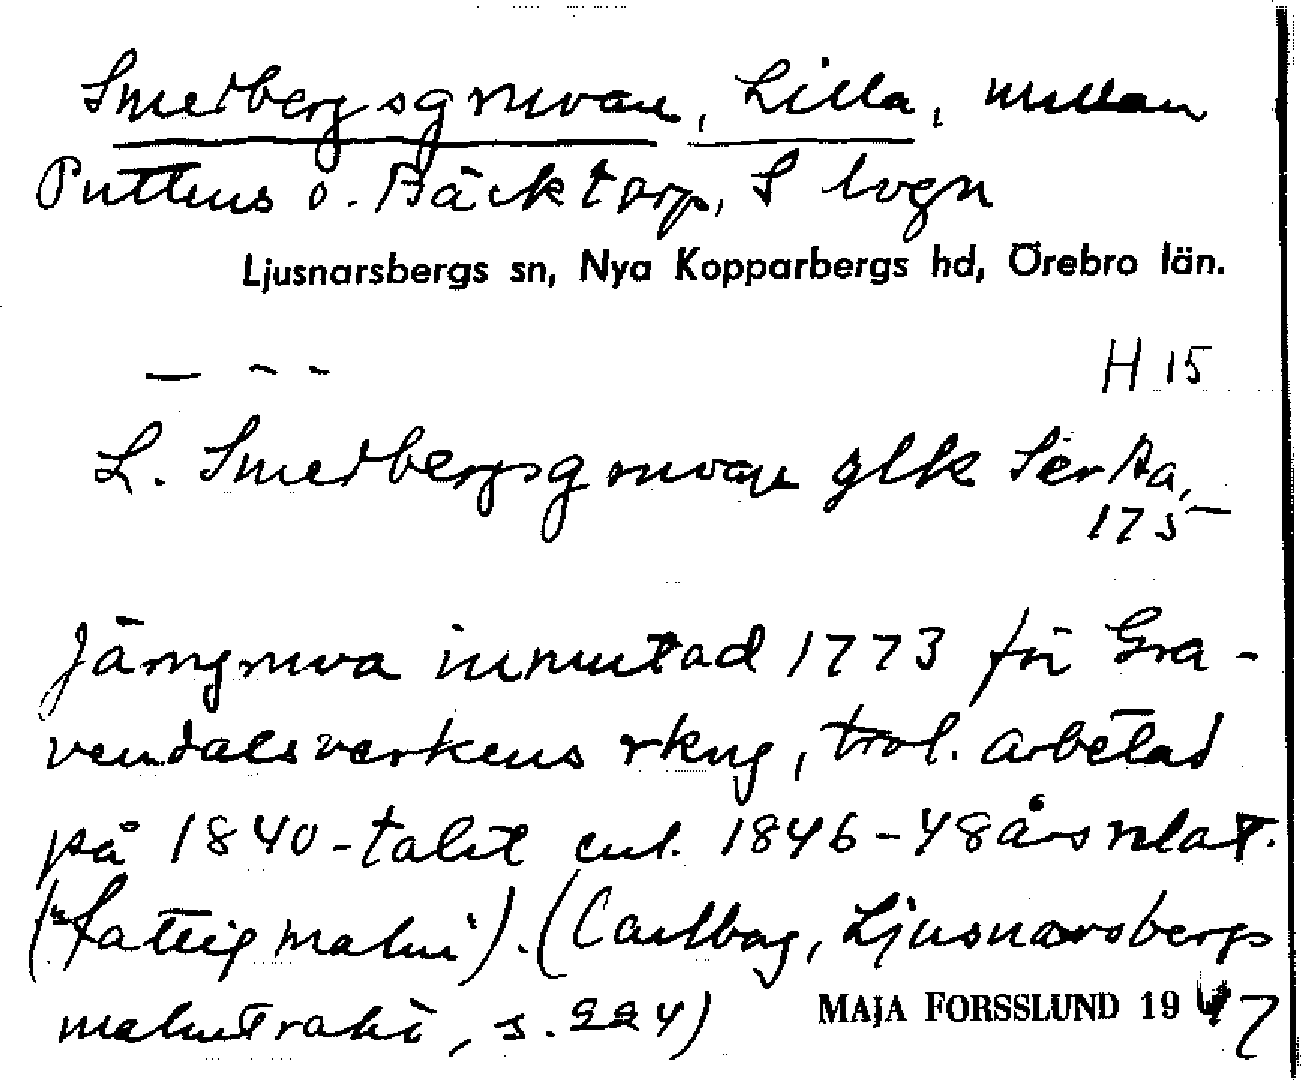 Smedbergsgruvan, Lilla, mellan
Puttens o. Bäcktorp, S
Ljusnarsbergs sn, Nya Kopparbergs hd, Örebro län.
H 15
L. Smedbergsgruvan glk Ser Aa,
175
Järngruva inmutad 1773 för Gra-
vendalsverkens rkng, trol. arbetad
på 1840-talet enl. 1846-48 års relat.
("fattig malm"). (Carlborg, Ljusnarsbergs
malmtrakt, s. 224)
MAJA FORSSLUND 1947